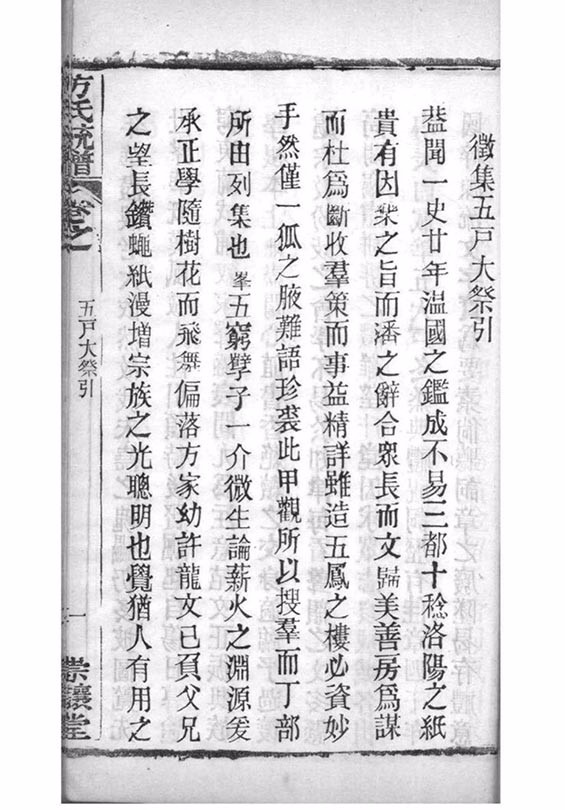 徵集五戸大祭引
葢聞一史廿年温國之鑑成不易三都十稔洛陽之紙
貴有因樂之旨而潘之辭合衆長而文歸美善房爲謀
而杜爲斷收羣策而事益精詳雖造五鳳之樓必資妙
手然僅一狐之腋難語珍裘此甲觀所以搜羣而丁部
所由列集也峯五窮孽子一介微生論薪火之淵源爰
承正學隨樹花而飛舞偏落方家幼許龍文已負父兄
之望長鑽蠅紙漫增宗族之光聰明也覺猶人有用之
方氏統譜
卷之
五戸大祭引
一
崇讓堂